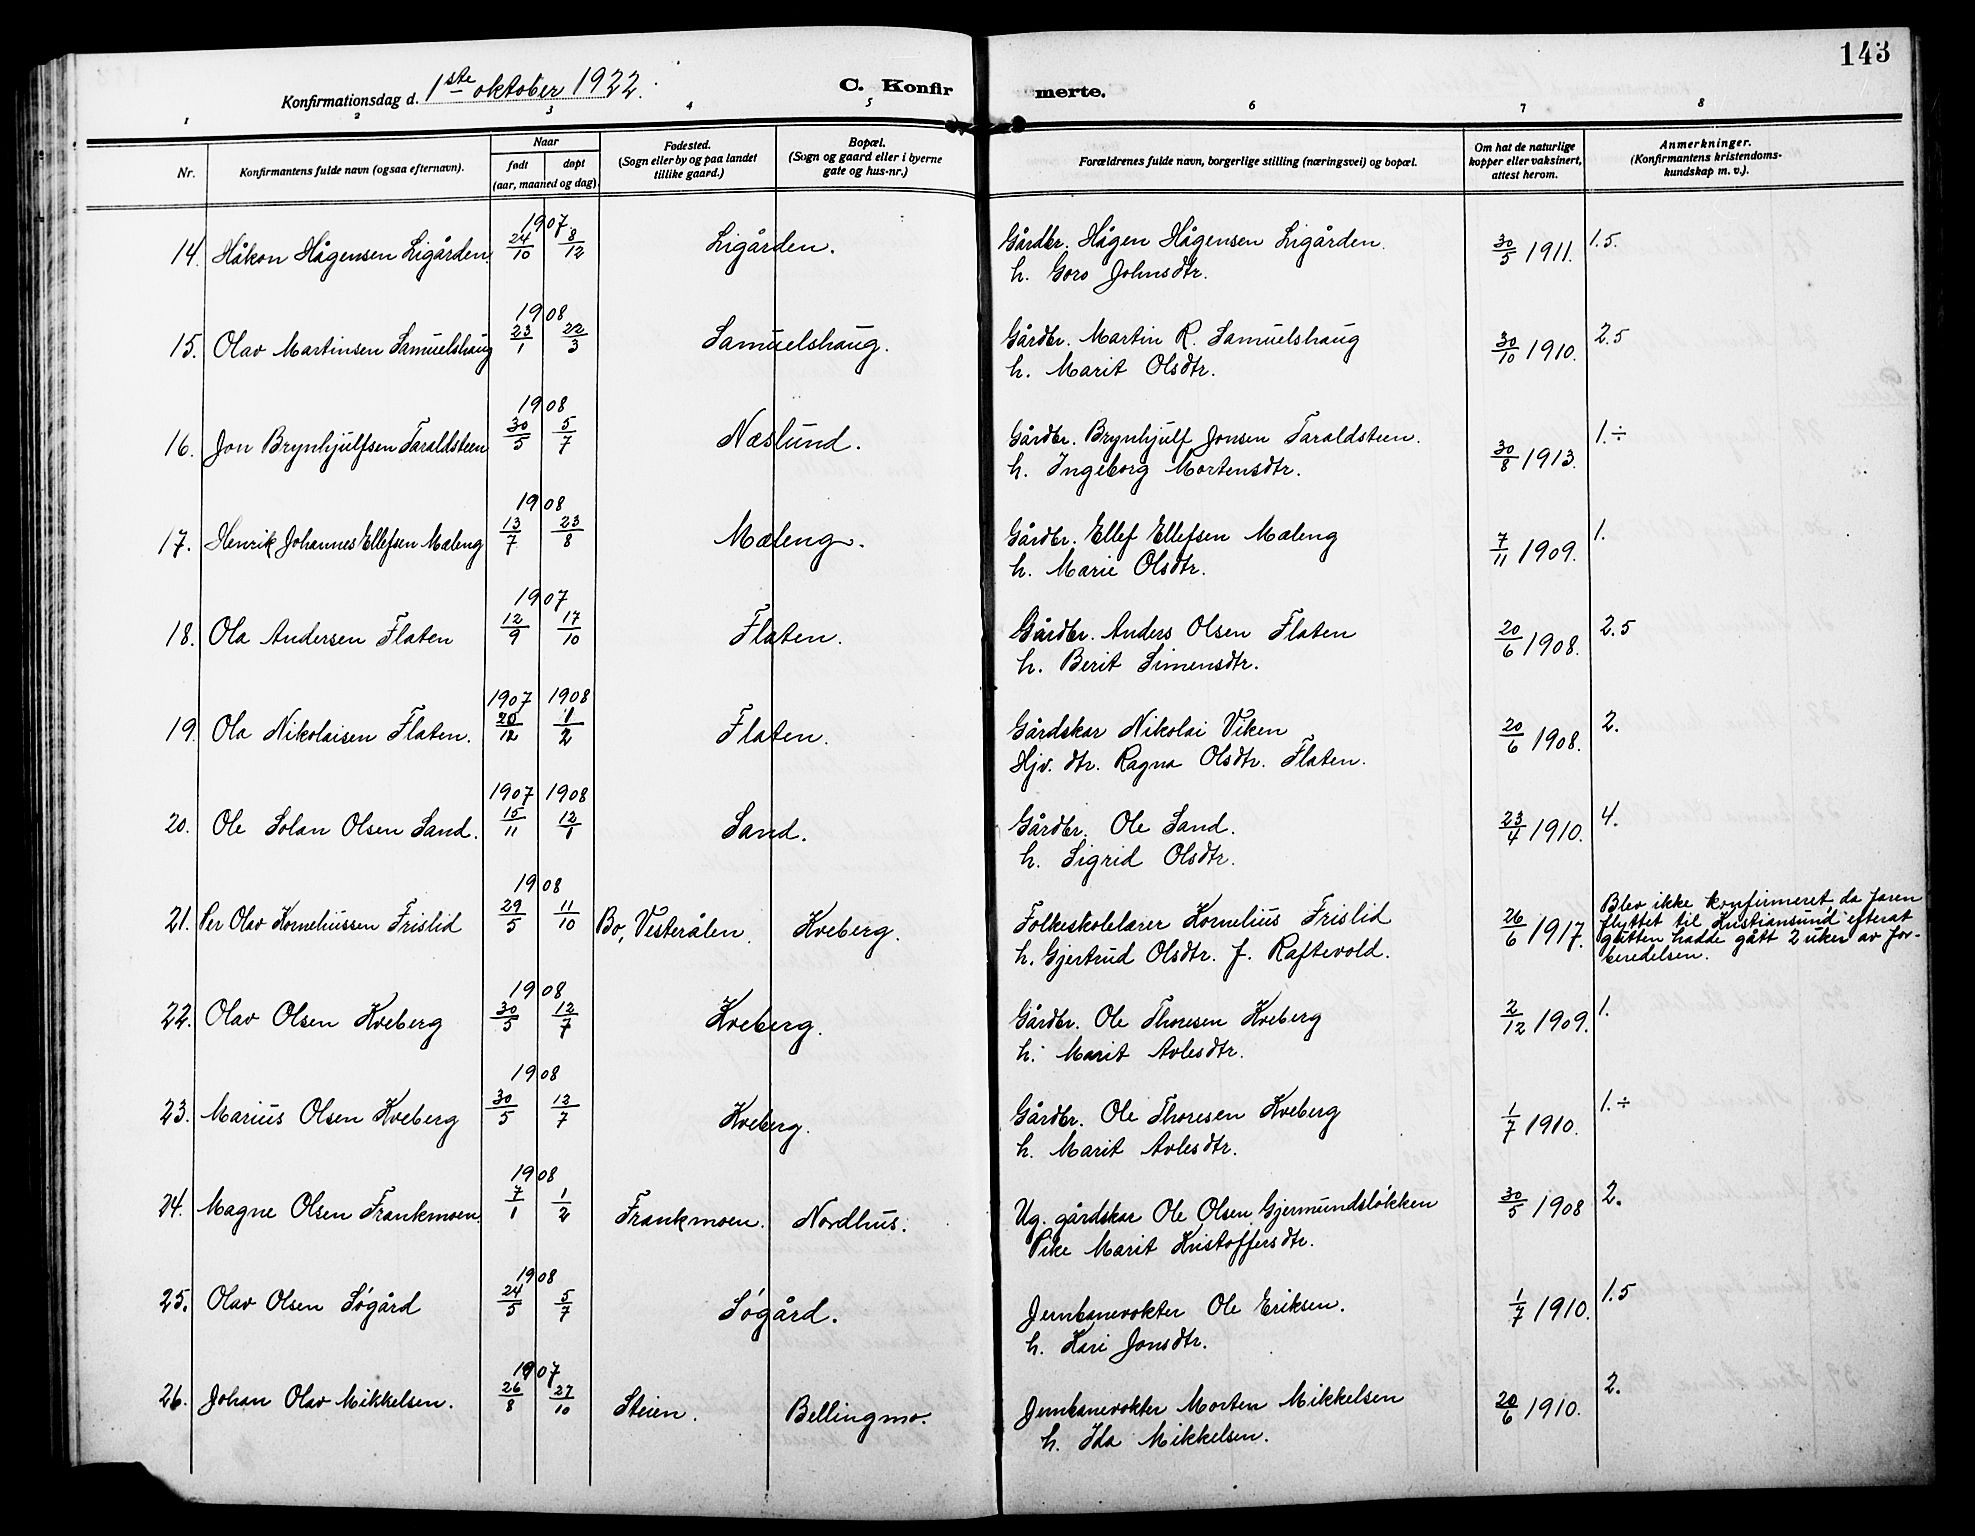 143
Konfirmationsdag d. 1ste oktober 1922.
C. Konfirmerte.
1 2 3 4 5 6 7 8
Nr. Konfirmantens fulde navn (ogsaa efternavn). Naar født døpt (aar, maaned og dag) Fødested. (Sogn eller by og paa landet tillike gaard.) Bopæl. (Sogn og gaard eller i byerne gate og hus-nr.) Forældrenes fulde navn, borgerlige stilling (næringsvei) og bopæl. Om hat de naturlige kopper eller vaksinert, attest herom. Anmerkninger. (Konfirmantens kristendoms-kundskap m. v.).
1907
14. Håkon Hågensen Ligården. 24/10 8/12 Ligården. Gårdbr. Hågen Hågensen Ligården. 30/5 1911. 1.5.
h. Goro Johnsdtr.
1908
15. Olav Martinsen Samuelshaug 23/1 22/3 Samuelshaug. Gårdbr. Martin R. Samuelshaug 30/10 1910. 2.5
h. Marit Olsdtr.
1908
16. Jon Brynhjulfsen Taraldsteen 30/5 5/7 Næslund. Gårdbr. Brynhjulf Jonsen Taraldsteen. 30/8 1913. 1.÷
h. Ingeborg Mortensdtr.
1908
17. Henrik Johannes Ellefsen Mæleng 13/7 23/8 Mæleng. Gårdbr. Ellef Ellefsen Mæleng 7/11 1909. 1.
h. Marie Olsdtr.
1907
18. Ola Andersen Flaten 12/9 17/10 Flaten. Gårdbr. Anders Olsen Flaten 20/6 1908. 2.5
h. Berit Simensdtr.
1907 1908
19. Ola Nikolaisen Flaten. 20/12 1/2 Flaten. Gårdskar Nikolai Viken 20/6 1908. 2.
Hjv. dtr. Ragna Olsdtr. Flaten.
1907 1908
20. Ole Solan Olsen Sand. 15/11 12/1 Sand. Gårdbr. Ole Sand. 23/4 1910. 4.
h. Sigrid Olsdtr.
1908
21. Per Olav Korneliussen Frislid 29/5 11/10 Bo, Vesterålen. Kveberg. Folkeskolelærer Kornelius Frislid 26/6 1917. Blev ikke konfirmeret, da faren
flyttet til Kristiansund efterat
gutten hadde gått 2 uker av for-
beredelsen.
h. Gjertrud Olsdtr. f. Raftevold.
1908
22. Olav Olsen Kveberg 30/5 12/7 Kveberg. Gårdbr. Ole Thoresen Kveberg 2/12 1909. 1.
h. Marit Avlesdtr.
1908
23. Marius Olsen Kveberg 30/5 12/7 Kveberg. Gårdbr. Ole Thoresen Kveberg 1/7 1910. 1.÷
h. Marit Avlesdtr.
1908
24. Magne Olsen Frankmoen. 7/1 1/2 Frankmoen. Nordhus. Ug. gårdskar Ole Olsen Gjermundsløkken 30/5 1908 2.
Pike Marit Kristoffersdtr.
1908
25. Olav Olsen Søgård 24/5 5/7 Søgård. Jernbanevokter Ole Eriksen. 1/7 1910. 1.5
h. Kari Jonsdtr.
1907
26. Johan Olav Mikkelsen. 26/8 27/10 Steien. Bellingmo. Jernbanevokter Morten Mikkelsen 20/6 1910. 2.
h. Ida Mikkelsen.